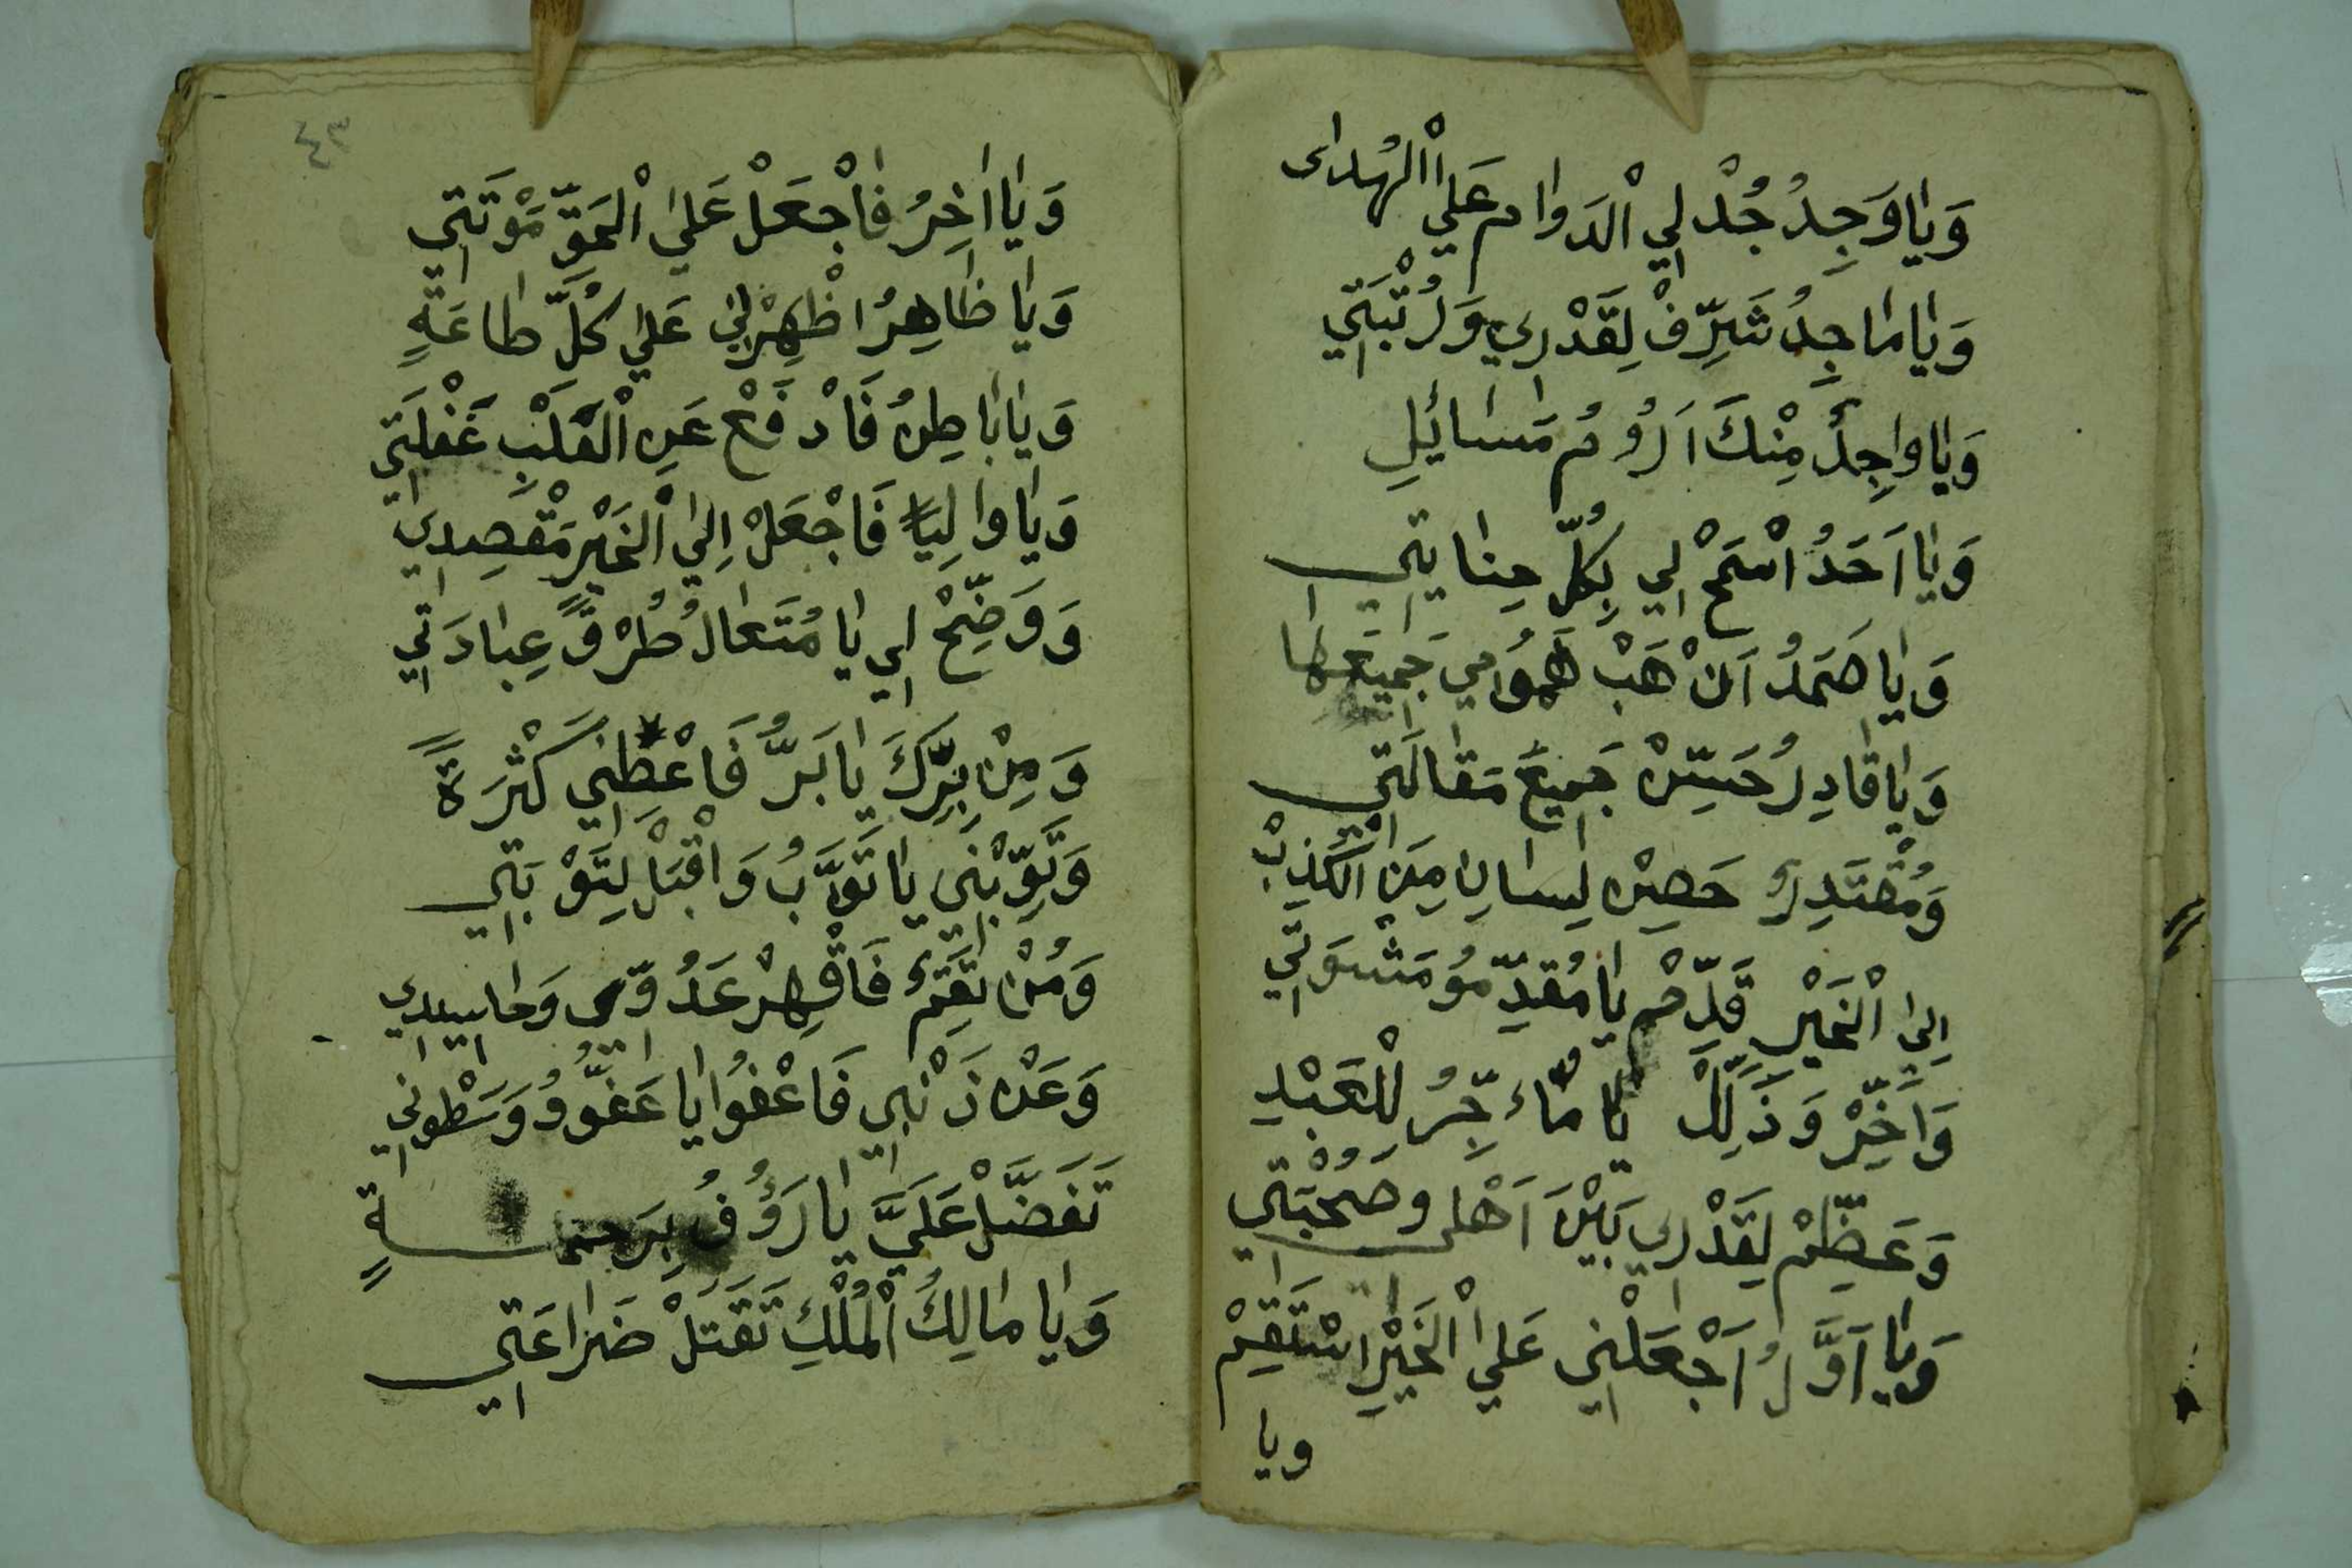 وَيَا وَجِدُ جُدْ لِي الْدَوَام عَلَي الْهُدای
وَيَا مَاجِدُ شَرِّفْ لِقَدْرِي وَرُتْبَتِي
وَيَا وَاجِدُ مِنْكَ اَرُوُم مَسَائِلِ
وَيَا اَحَدُ اسْمَحْ لِي بِكُلِّ جِنَايَتِي
وَيَا صَمَدُ اَنْ هَبْ هُمُوَامِي جَمِيعَهَا
وَيَا قَادِرُ حَسِّنْ جَمِيعَ مَقَالَتِي
وَمُقْتَدِرُ حَصِنْ لِسَانِ مِنَ الْكَذِبْ
اِلَى الْخَيْرِ قَدِّمْ يَا مُقَدِّمُو مَشْوَتِي
وَاَخِّرْ وَذَلِّلْ يَا مُاءَخِّرُ لِلْعَبْدِ
وَعَظِّمْ لِقَدْرِي بَيْنَ اَهْلِ وصُحْبَتِي
وَيَا اَوَّلُ اَجْعَلْنِي عَلَي الْخَيْرِ اسْتَقِمْ
ويا
٤٣
وَيَا اَخِرُ فَاجْعَلْ عَلَى الْحَقِّ مَوْتَتِي
وَيَا ظَاهِرُ اظْهِرْنِي عَلَي كُلِّ طاعَةٍ
وَيَا بَاطِنُ فَادْفَعْ عَنِ الْقَلْبِ غَفْلَتِي
وَيَا وَالِيًا فَاجْعَلْ اِلَي الْخَيْرِ مَقْصِدِي
وَوَضِّحْ لِي يَا مُتَعَالُ طُرْقً عِبَادَتِي
وَمِنْ بِرِّكَ يَا بَرُّ فَاعْطِنِي كَثْرَةً
وَتَوِّبْنِي يَا تَوَّبُ وَاقْبَلْ لِتَوْبَتِي
وَمُنْتَقِمُ فَاقْهِرْ عَدُوِّي وَحَاسِدِي
وَعَنْ ذَنْبِي فَاعْفُوا يَا عَفُّوُ وَسَطْوَتِي
تَفَضَّلْ عَلَيَّ يَا رَؤُوفُ بِرَحْمَةٍ
وَيَا مَالِكُ الْمُلْكِ تَقَتَلْ ضَرَاعَتِي